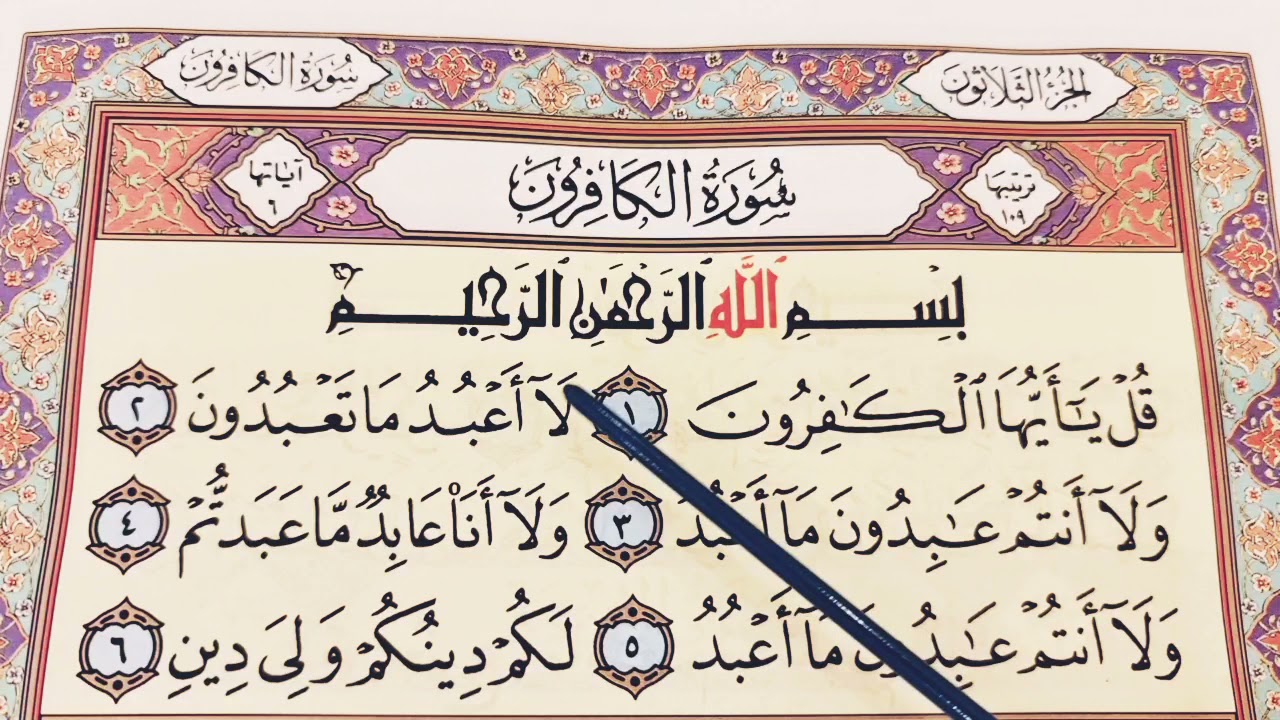 الجُزْءُ الثَّلَاثُونَ
سُورَةُ الكَافِرُونَ
ترتيبها
١٠٩
سُورَةُ الكَافِرُونَ
آياتها
٦
بِسْمِ ٱللَّهِ ٱلرَّحْمَٰنِ ٱلرَّحِيمِ
قُلْ يَٰٓأَيُّهَا ٱلْكَٰفِرُونَ ١ لَآ أَعْبُدُ مَا تَعْبُدُونَ ٢
وَلَآ أَنتُمْ عَٰبِدُونَ مَآ أَعْبُدُ ٣ وَلَآ أَنَا۠ عَابِدٌ مَّا عَبَدتُّمْ ٤
وَلَآ أَنتُمْ عَٰبِدُونَ مَآ أَعْبُدُ ٥ لَكُمْ دِينُكُمْ وَلِىَ دِينِ ٦